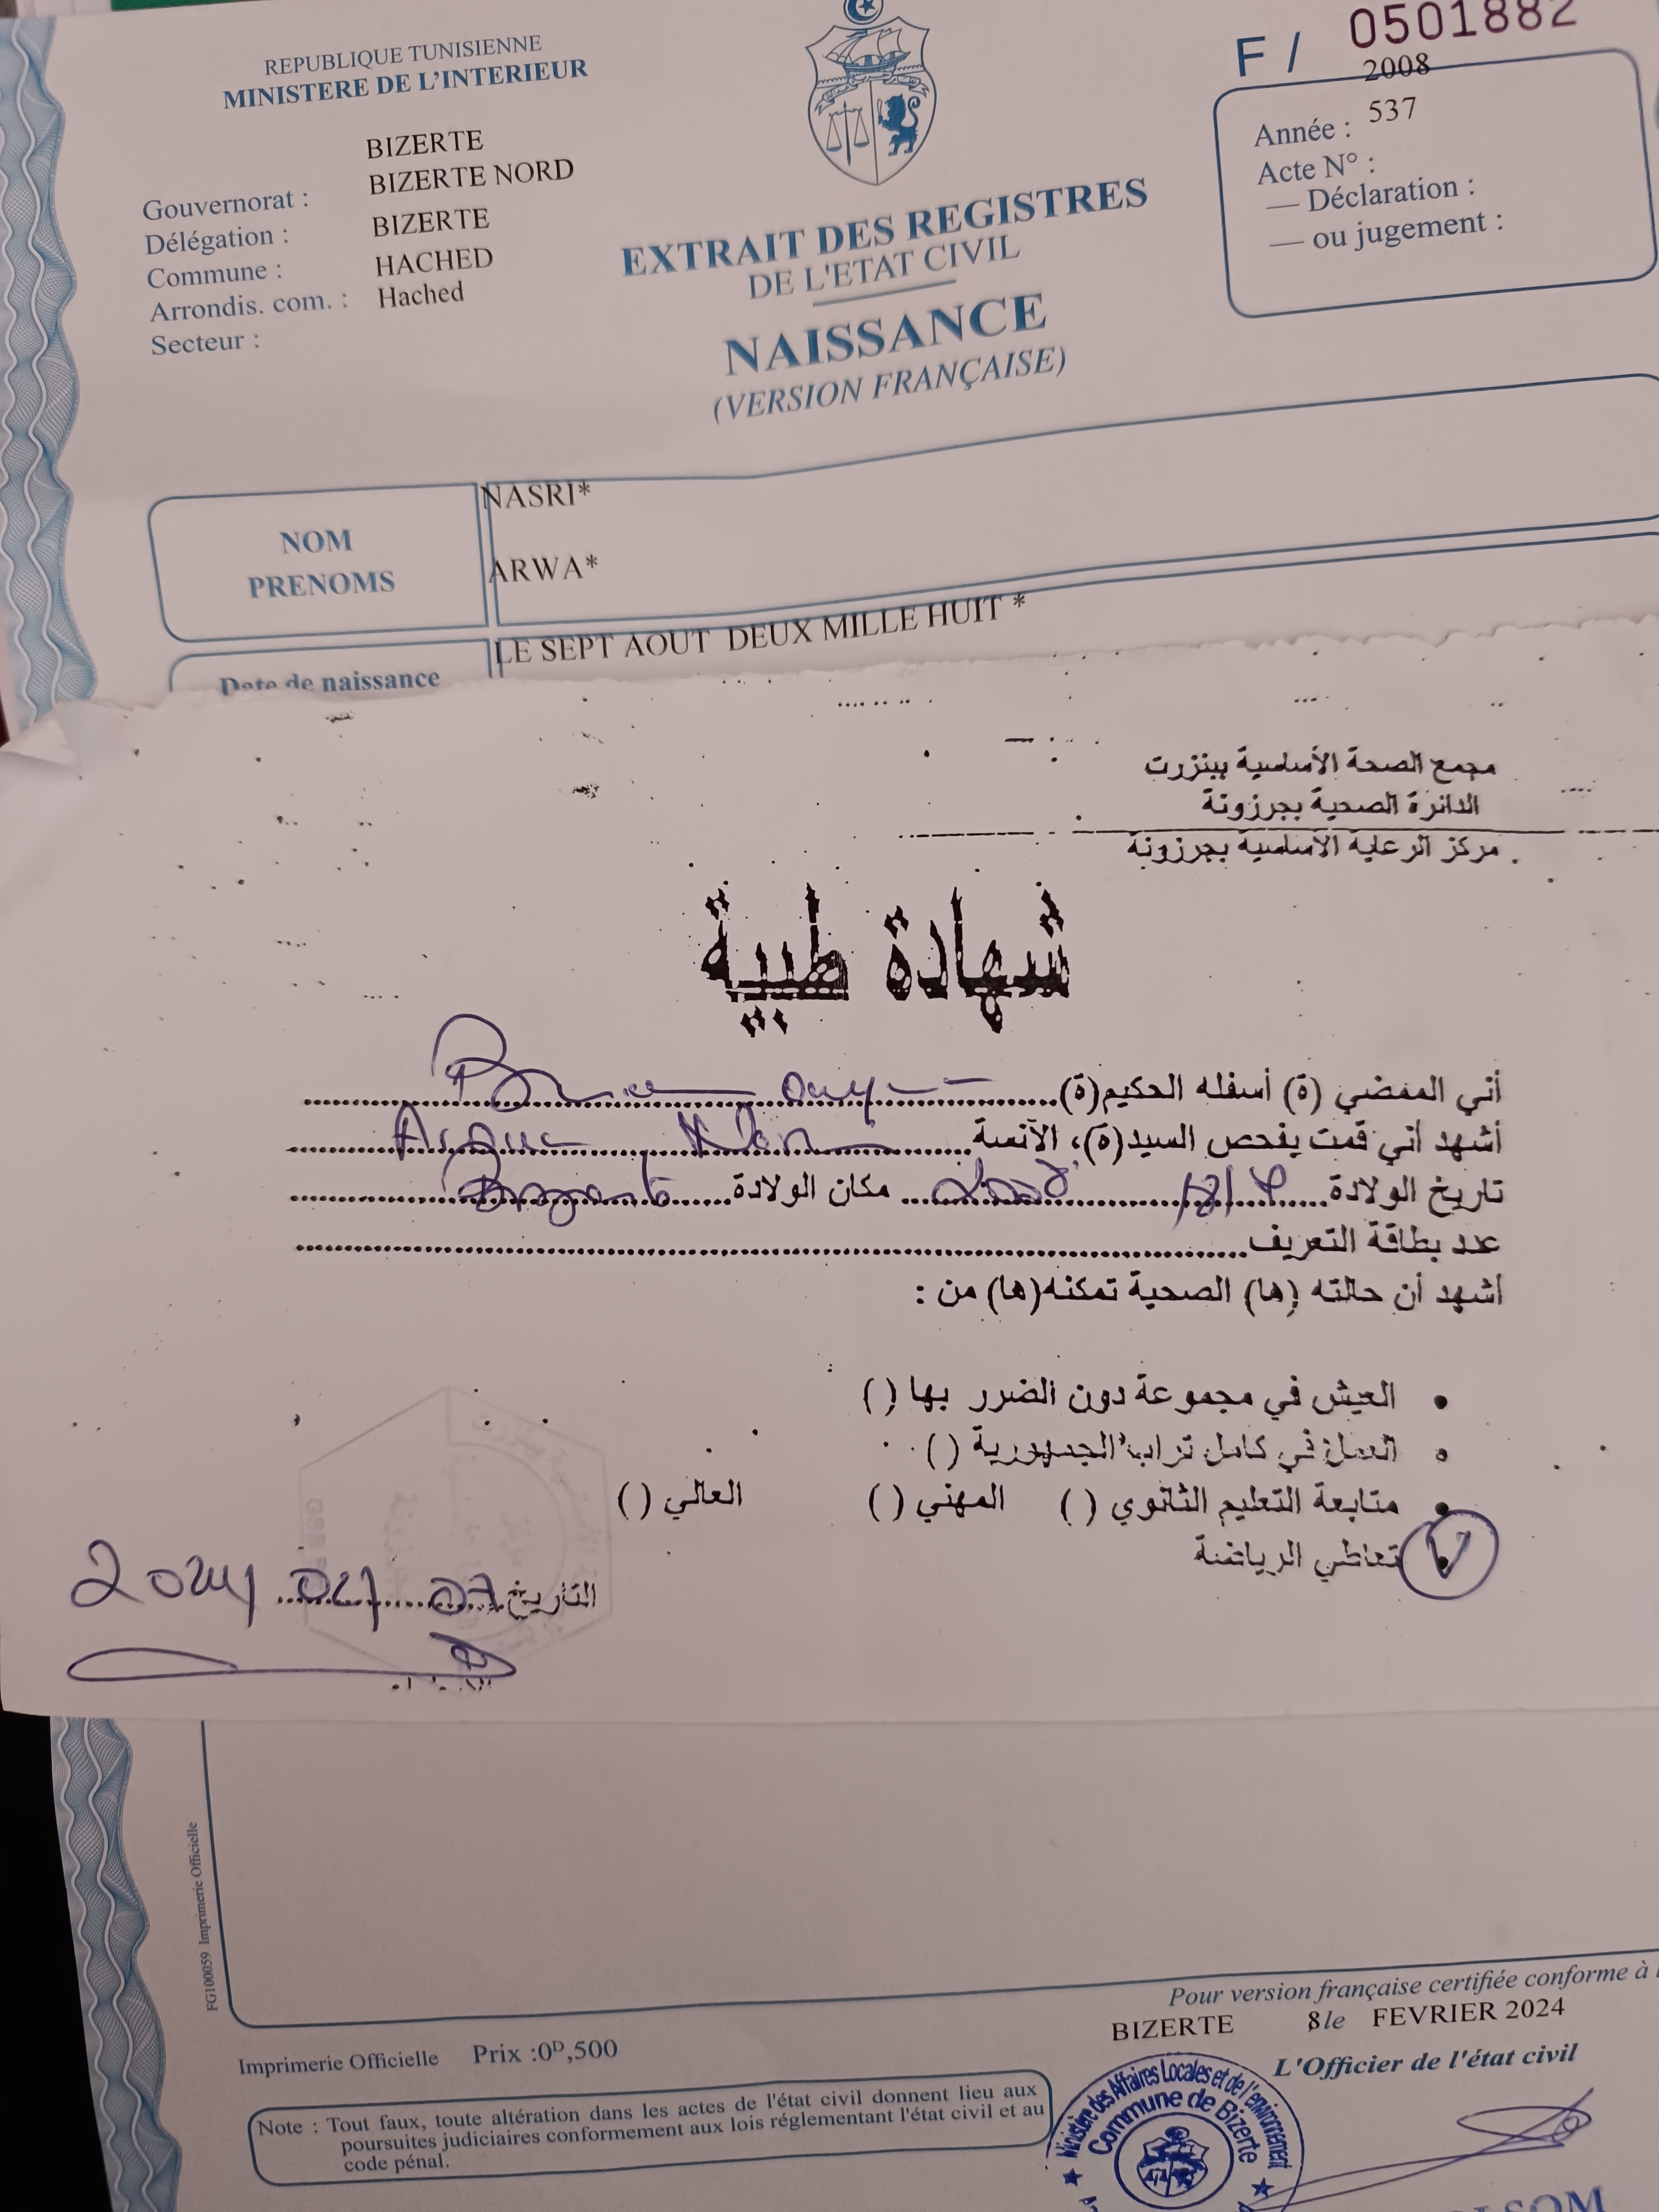 REPUBLIQUE TUNISIENNE
MINISTERE DE L'INTERIEUR
F / 0501882
2008
Année : 537
Acte N° :
— Déclaration :
— ou jugement :
BIZERTE
Gouvernorat : BIZERTE NORD
Délégation : BIZERTE
Commune : HACHED
Arrondis. com. : Hached
Secteur :
EXTRAIT DES REGISTRES
DE L'ETAT CIVIL
NAISSANCE
(VERSION FRANÇAISE)
NOM
PRENOMS
NASRI*
ARWA*
LE SEPT AOUT DEUX MILLE HUIT *
Date de naissance
مجمع الصحة الأساسية ببنزرت
الدائرة الصحية بجرزونة
مركز الرعاية الأساسية بجرزونة
شهادة طبية
أني الممضي (ة) أسفله الحكيم(ة)
أشهد أني قمت بفحص السيد(ة)، الآنسة
تاريخ الولادة 2008 مكان الولادة
عدد بطاقة التعريف
أشهد أن حالته (ها) الصحية تمكنه(ها) من :
• العيش في مجموعة دون الضرر بها ( )
• العمل في كامل تراب الجمهورية ( )
• متابعة التعليم الثانوي ( ) المهني ( ) العالي ( )
• تعاطي الرياضة
التاريخ
FG100059 Imprimerie Officielle
Pour version française certifiée conforme à
BIZERTE 8 le FEVRIER 2024
L'Officier de l'état civil
Imprimerie Officielle Prix :0D,500
Note : Tout faux, toute altération dans les actes de l'état civil donnent lieu aux
poursuites judiciaires conformement aux lois réglementant l'état civil et au
code pénal.
Ministère des Affaires Locales et de l'environnement
Commune de Bizerte